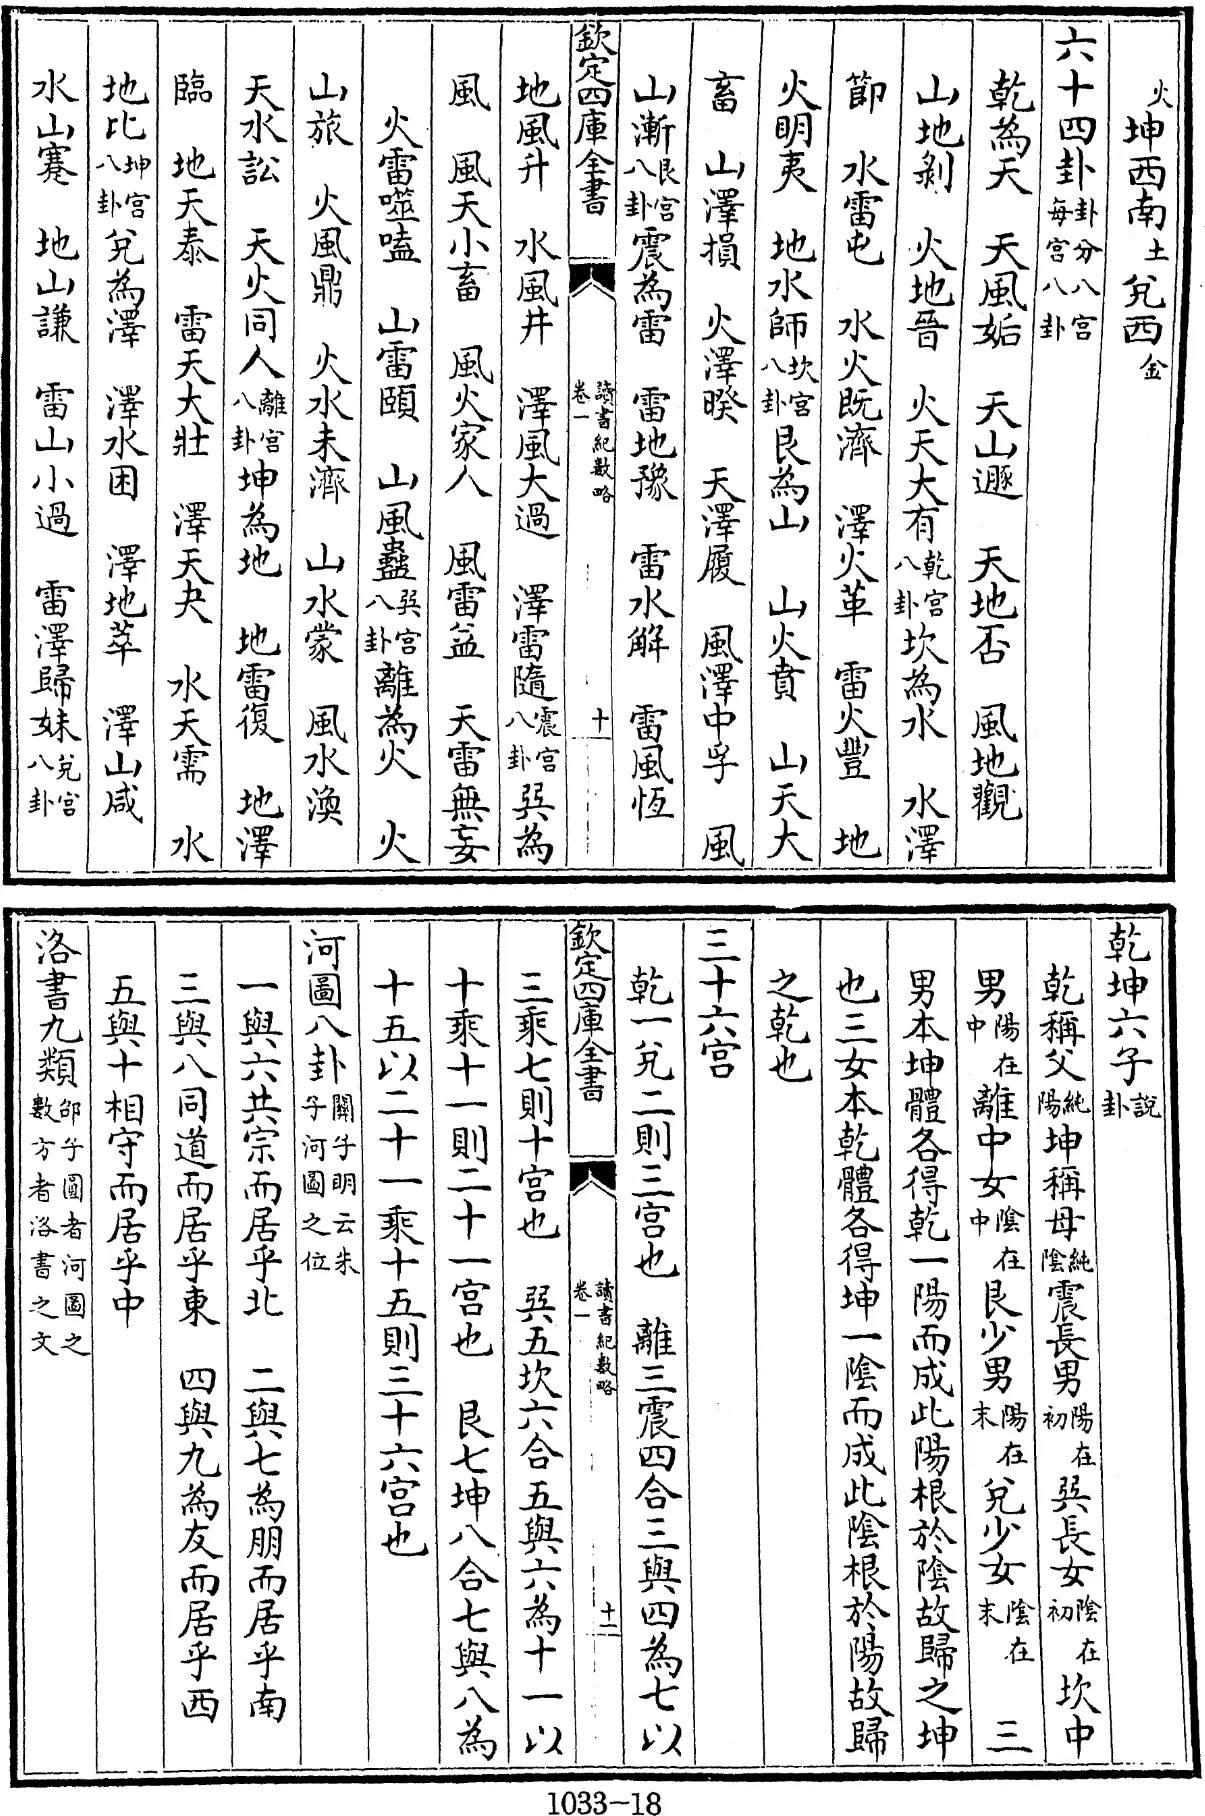 火坤西南土兌西金
六十四卦卦分八宫每宫八卦
乾為天　天風姤　天山遯　天地否　風地觀
山地剝　火地晉　火天大有乾宫八卦坎為水　水澤
節　水雷屯　水火既濟　澤火革　雷火豐　地
火明夷　地水師坎宫八卦艮為山　山火賁　山天大
畜　山澤損　火澤睽　天澤履　風澤中孚　風
山漸艮宫八卦震為雷　雷地豫　雷水解　雷風恆
欽定四庫全書　讀書紀數略卷一　十
地風升　水風井　澤風大過　澤雷隨震宫八卦巽為
風　風天小畜　風火家人　風雷益　天雷無妄
火雷噬嗑　山雷頤　山風蠱巽宫八卦離為火　火
山旅　火風鼎　火水未濟　山水蒙　風水渙
天水訟　天火同人離宫八卦坤為地　地雷復　地澤
臨　地天泰　雷天大壯　澤天夬　水天需　水
地比坤宫八卦兌為澤　澤水困　澤地萃　澤山咸
水山蹇　地山謙　雷山小過　雷澤歸妹兌宫八卦
乾坤六子說卦
乾稱父純陽坤稱母純陰震長男陽在初巽長女陰在初坎中
男陽在中離中女陰在中艮少男陽在末兌少女陰在末　三
男本坤體各得乾一陽而成此陽根於陰故歸之坤
也三女本乾體各得坤一陰而成此陰根於陽故歸
之乾也
三十六宫
乾一兌二則三宫也　離三震四合三與四為七以
欽定四庫全書　讀書紀數略卷一　十一
三乘七則十宫也　巽五坎六合五與六為十一以
十乘十一則二十一宫也　艮七坤八合七與八為
十五以二十一乘十五則三十六宫也
河圖八卦關子明云朱子河圖之位
一與六共宗而居乎北　二與七為朋而居乎南
三與八同道而居乎東　四與九為友而居乎西
五與十相守而居乎中
洛書九類邵子圓者河圖之數方者洛書之文
1033-18